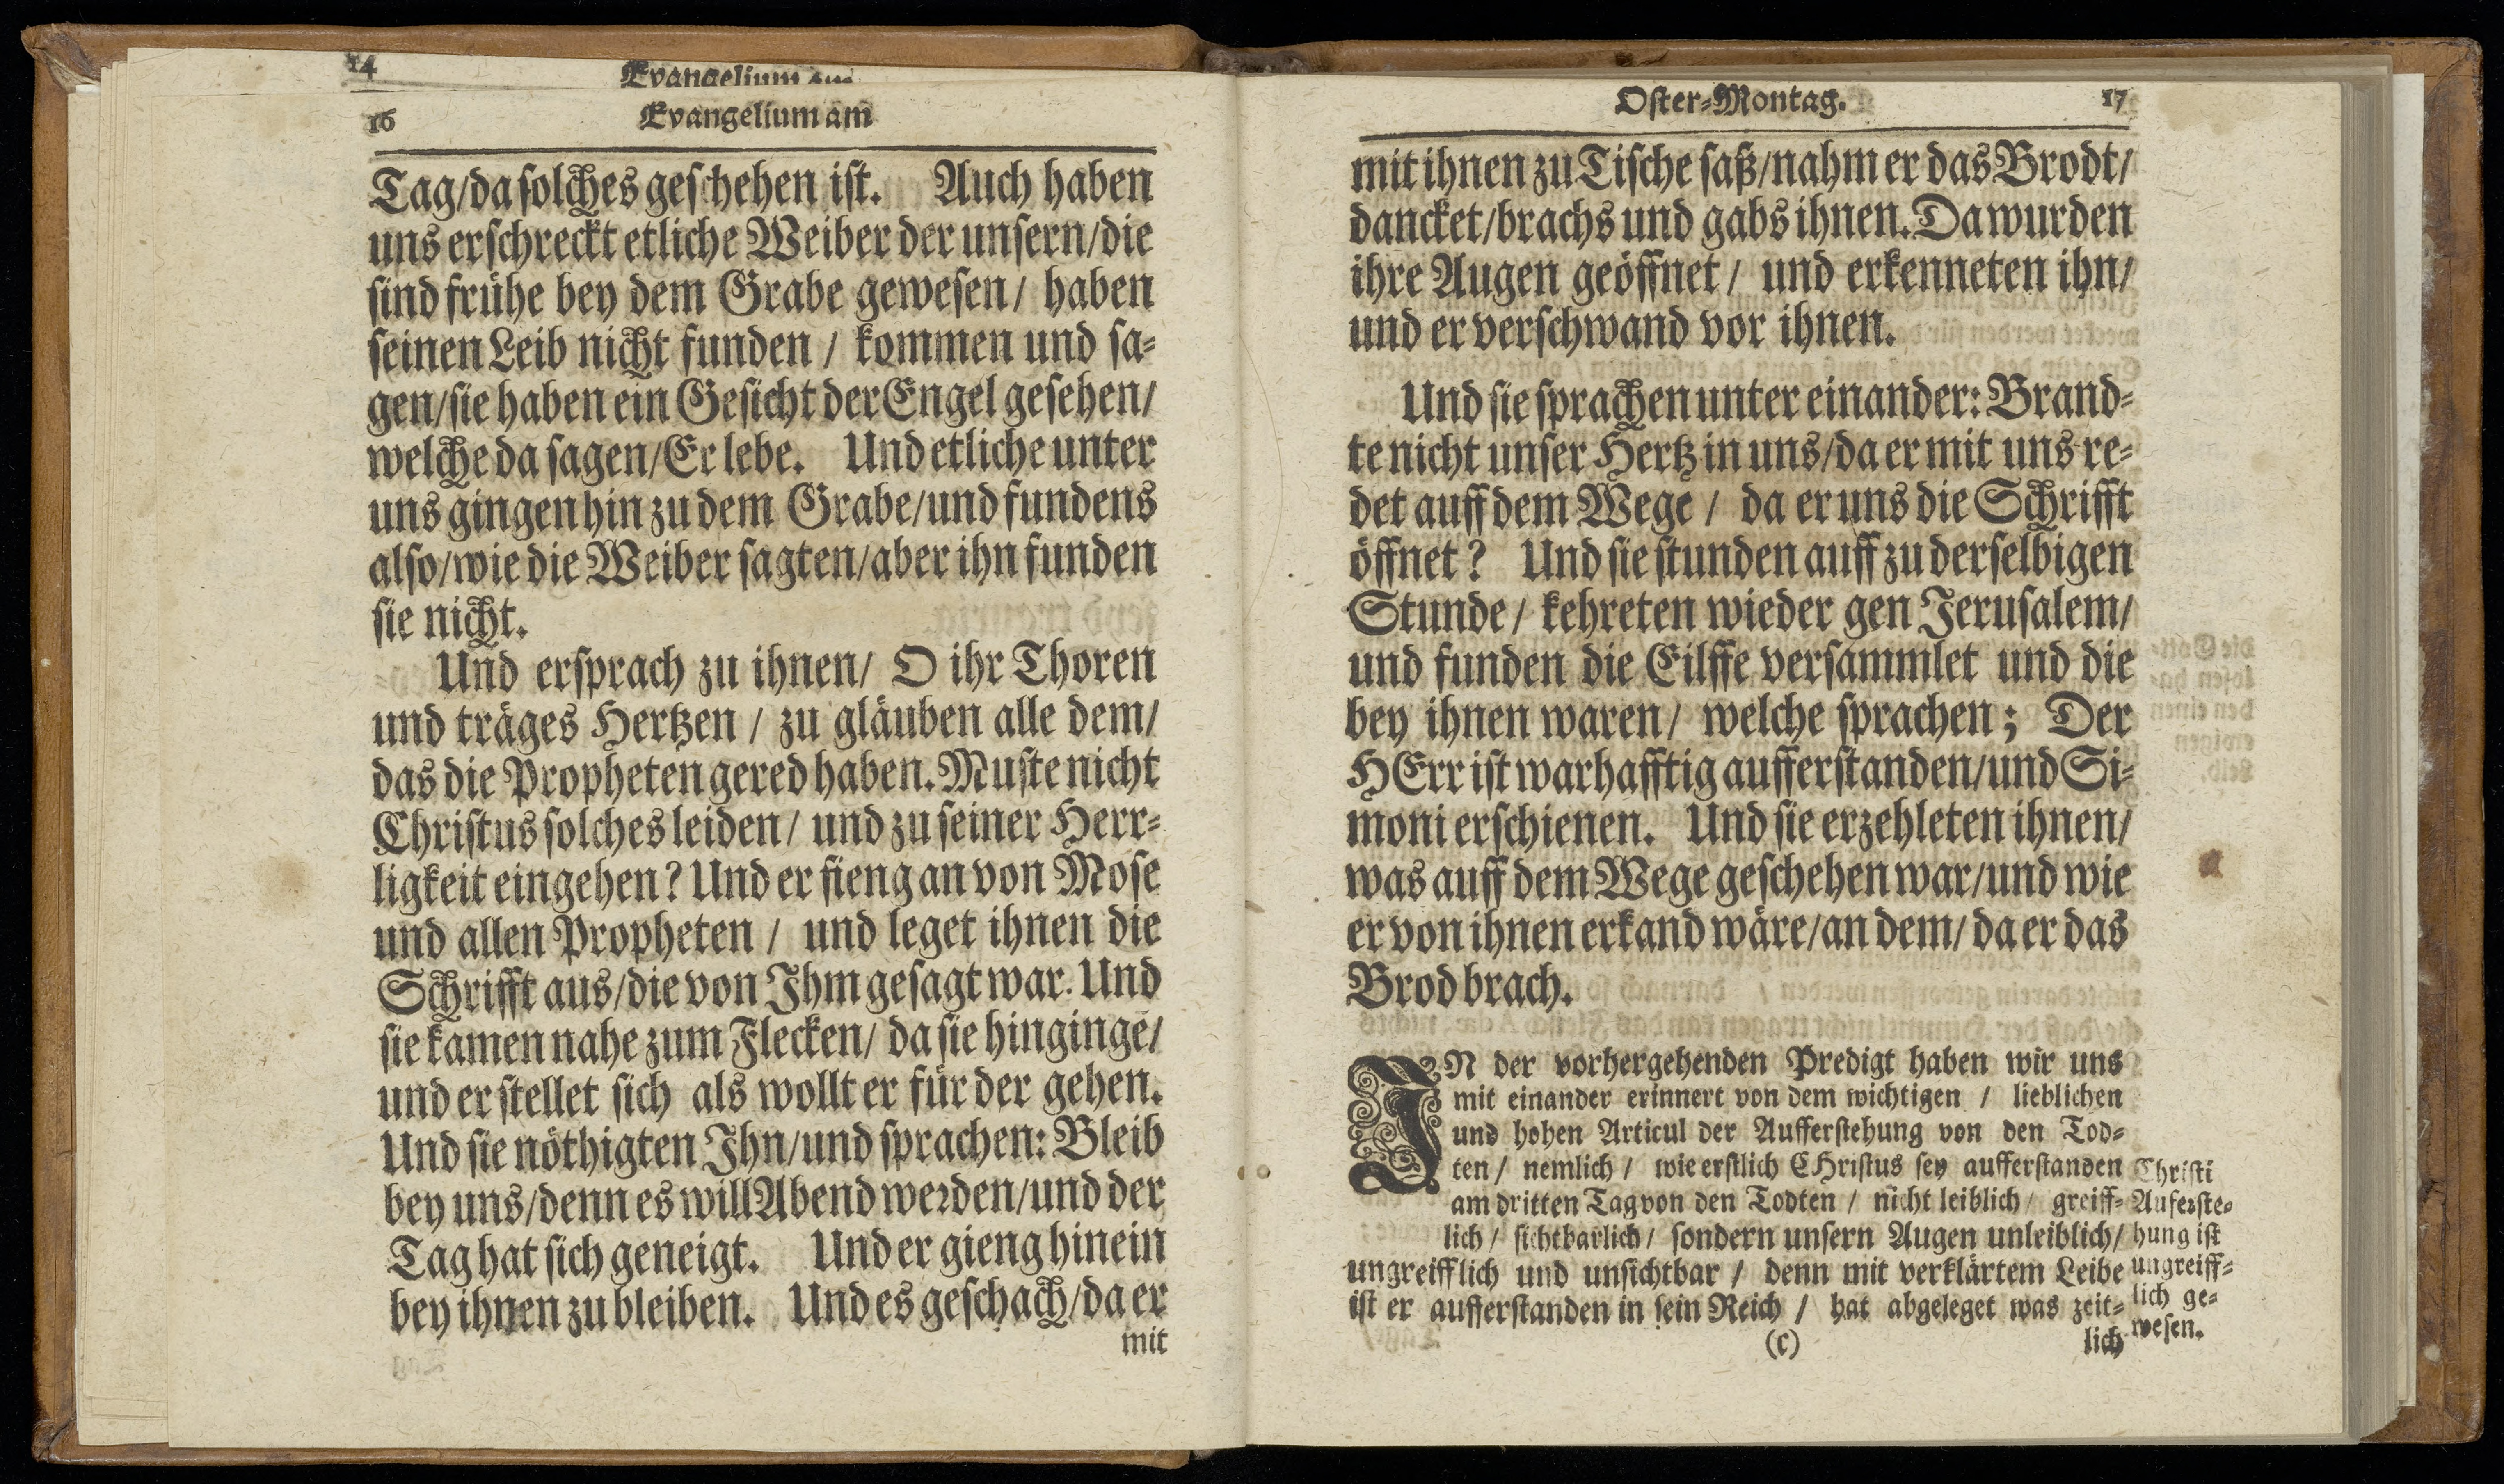 14
Evangelium am
16
Evangelium am
Tag/da solches geschehen ist. Auch haben
uns erschreckt etliche Weiber der unsern/die
sind frühe bey dem Grabe gewesen/ haben
seinen Leib nicht funden / kommen und sa-
gen/sie haben ein Gesicht der Engel gesehen/
welche da sagen/Er lebe. Und etliche unter
uns gingen hin zu dem Grabe/und fundens
also/wie die Weiber sagten/aber ihn funden
sie nicht.
Und ersprach zu ihnen/ O ihr Thoren
und träges Hertzen / zu gläuben alle dem/
das die Propheten gered haben. Muste nicht
Christus solches leiden/ und zu seiner Herr-
ligkeit eingehen? Und er fieng an von Mose
und allen Propheten / und leget ihnen die
Schrifft aus/die von Ihm gesagt war. Und
sie kamen nahe zum Flecken/ da sie hinginge/
und er stellet sich als wollt er für der gehen.
Und sie nöthigten Ihn/und sprachen: Bleib
bey uns/denn es will Abend werden/und der
Tag hat sich geneigt. Und er gieng hinein
bey ihnen zu bleiben. Und es geschach/da er
mit
Oster-Montag. 17
mit ihnen zu Tische saß/nahm er das Brodt/
dancket/brachs und gabs ihnen. Da wurden
ihre Augen geöffnet / und erkenneten ihn/
und er verschwand vor ihnen.
Und sie sprachen unter einander: Brand-
te nicht unser Hertz in uns/da er mit uns re-
det auff dem Wege / da er uns die Schrifft
öffnet? Und sie stunden auff zu derselbigen
Stunde / kehreten wieder gen Jerusalem/
und funden die Eilffe versammlet und die
bey ihnen waren/ welche sprachen; Der
HErr ist warhafftig aufferstanden/und Si-
moni erschienen. Und sie erzehleten ihnen/
was auff dem Wege geschehen war/und wie
er von ihnen erkand wäre/an dem/ da er das
Brod brach.
IN der vorhergehenden Predigt haben wir uns
mit einander erinnert von dem wichtigen / lieblichen
und hohen Articul der Aufferstehung von den Tod-
ten / nemlich / wie erstlich CHristus sey aufferstanden
am dritten Tag von den Todten / nicht leiblich / greiff-
lich / sichtbarlich / sondern unsern Augen unleiblich/
ungreifflich und unsichtbar / denn mit verklärtem Leibe
ist er aufferstanden in sein Reich / hat abgeleget was zeit-
(c) lich
Christi
Auferste-
hung ist
ungreiff-
lich ge-
wesen.